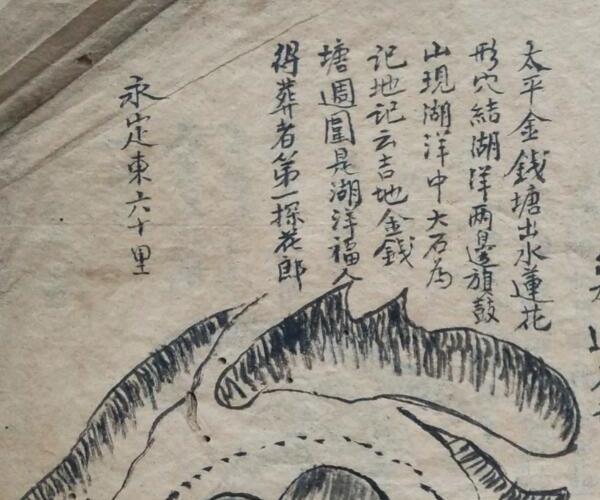 太平金錢塘出水蓮花
形穴結湖洋兩邊旗鼓
山現湖洋中大石為
記地記云吉地金錢
塘週圍是湖洋福人
得葬者第一探花郎
永定東六十里